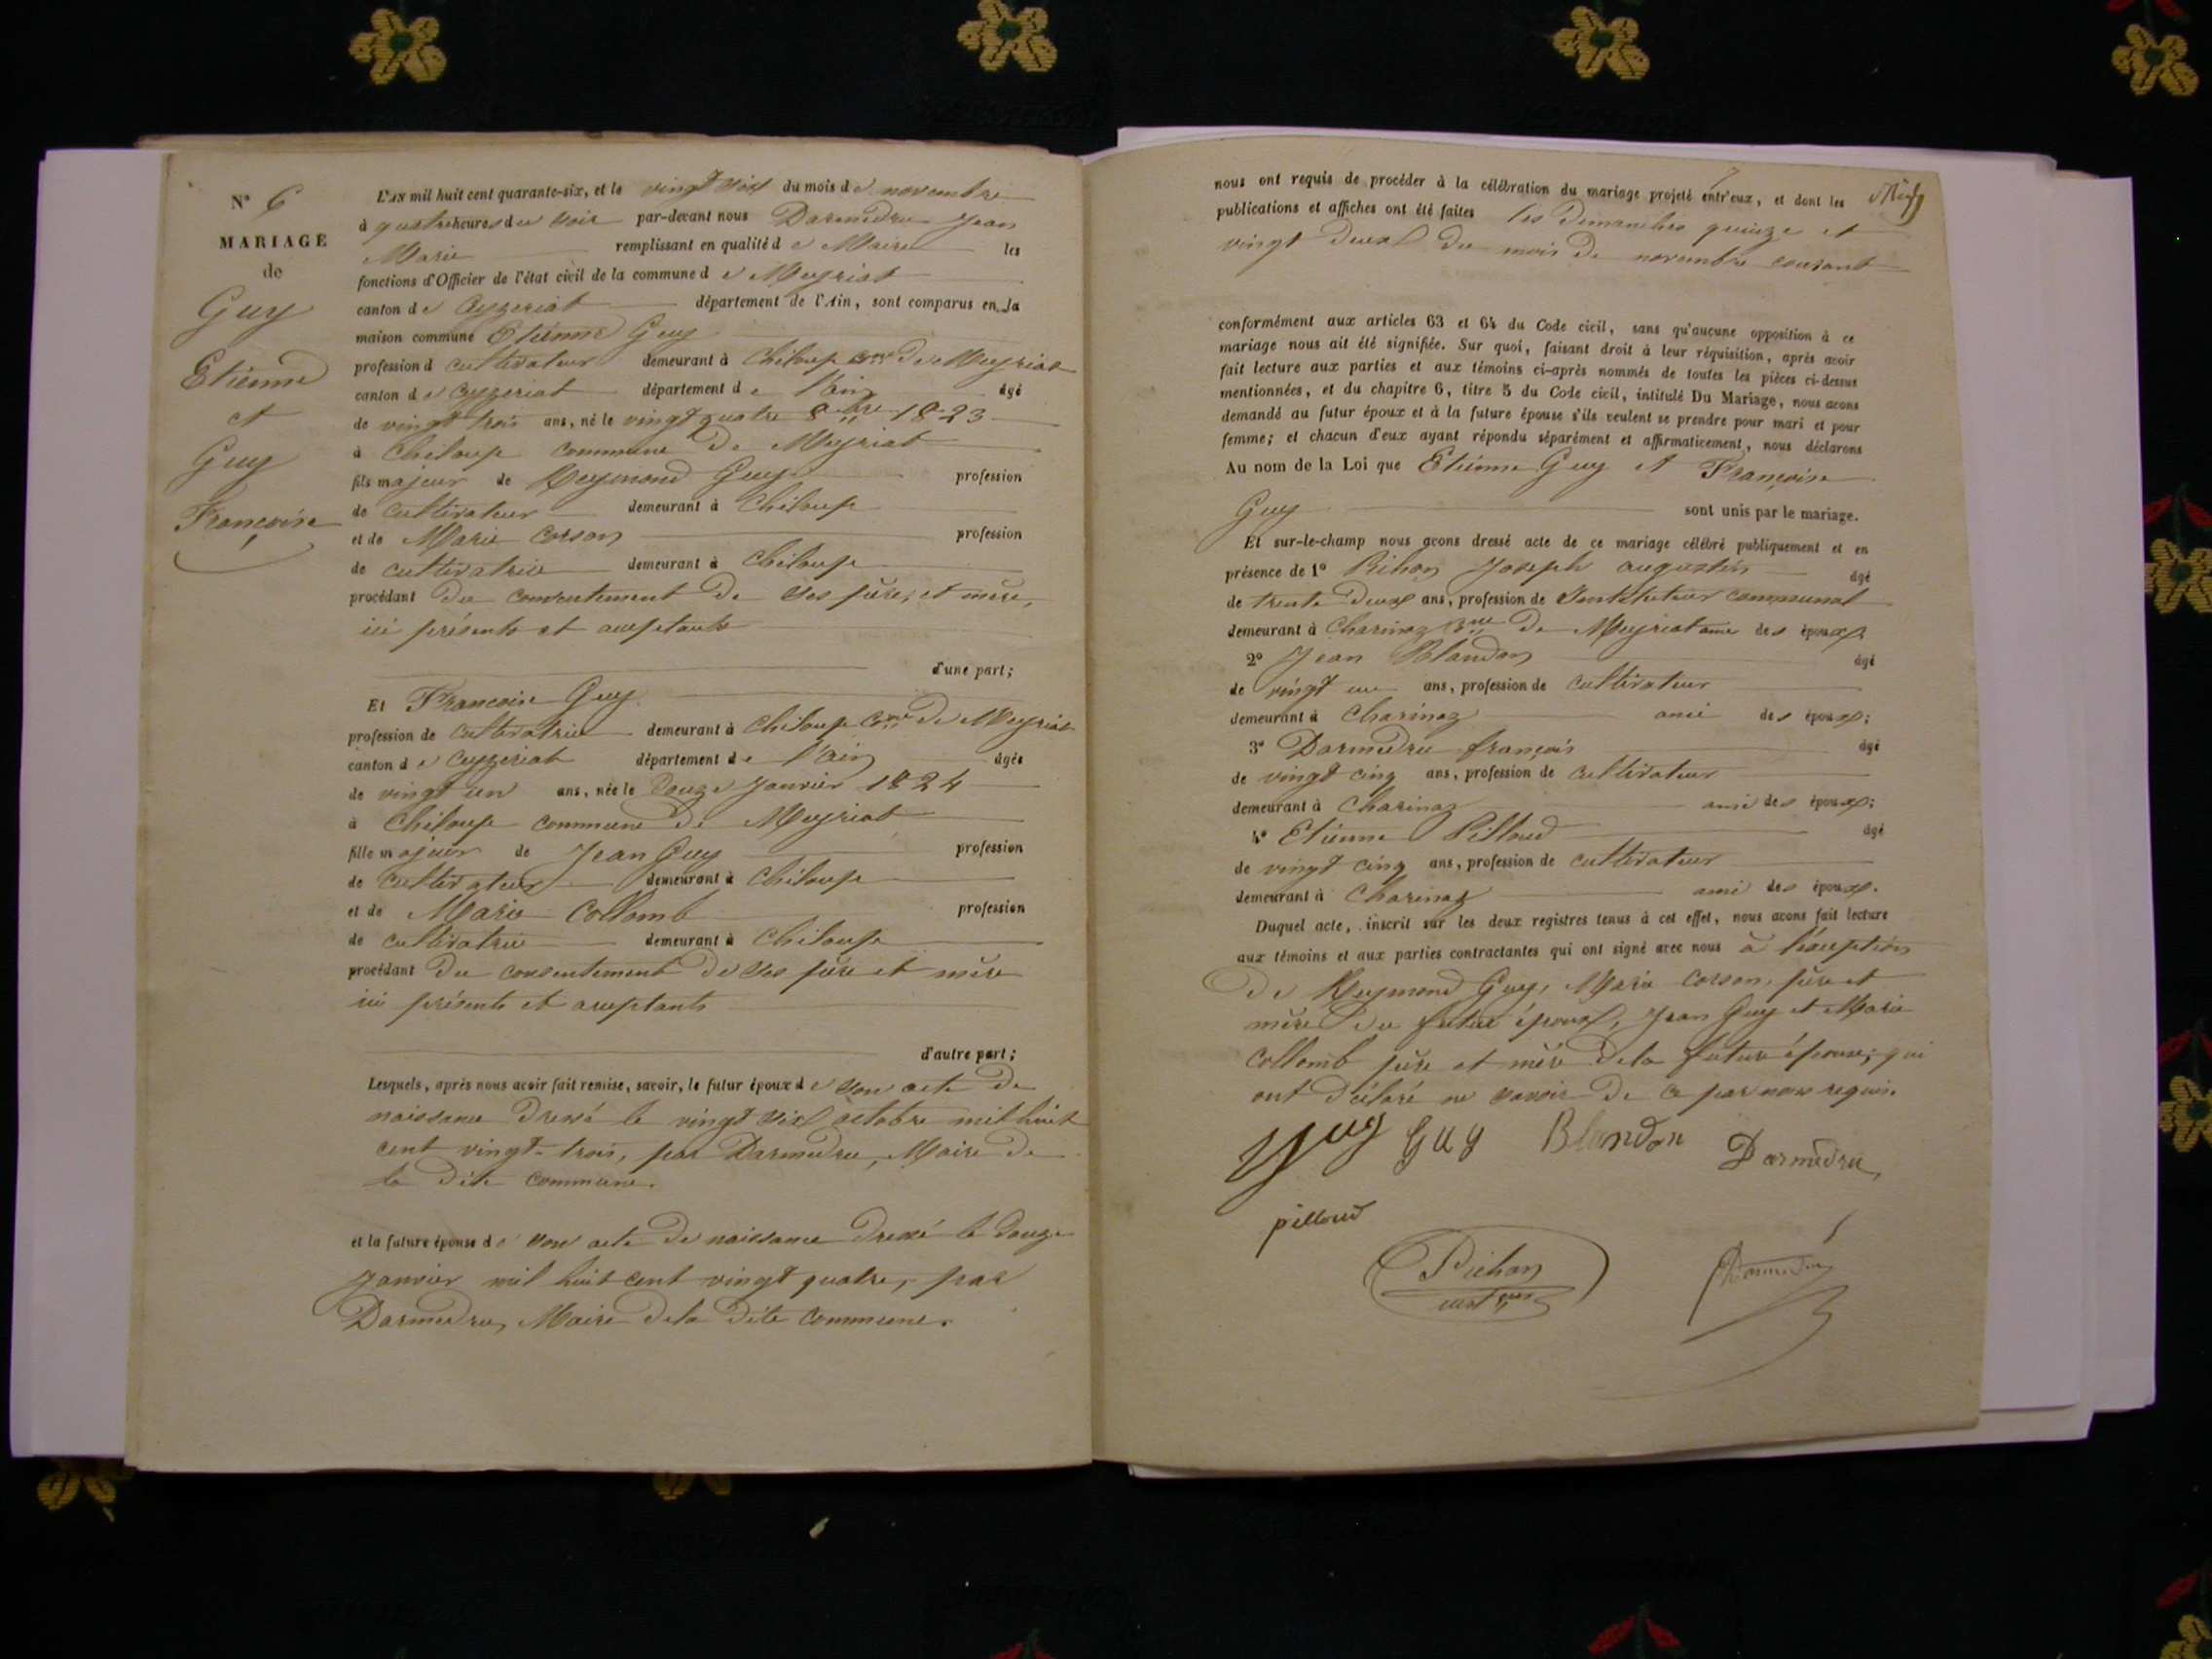 N° 6
MARIAGE
de
Guy
Etienne
et
Guy
Françoise
L'AN mil huit cent quarante-six, et le vingt six du mois de novembre
à quatre heures du soir par-devant nous Darmedru Jean
Marie remplissant en qualité de Maire les
fonctions d'Officier de l'état civil de la commune de Meyriat
canton de Ceyzeriat département de l'Ain, sont comparus en la
maison commune Etienne Guy
profession d cultivateur demeurant à Chiloup Cne de Meyriat
canton de Ceyzeriat département de l'ain âgé
de vingt trois ans, né le vingt quatre 8bre 1823
à Chiloup commune de Meyriat
fils majeur de Reymond Guy profession
de cultivateur demeurant à Chiloup
et de Marie Corson profession
de cultivatrice demeurant à Chiloup
procédant du consentement de ses père, et mère,
ici présents et acceptants
d'une part;
Et Francoise Guy
profession de cultivatrice demeurant à Chiloup Cne de Meyriat
canton de Ceyzeriat département de l'ain âgée
de vingt un ans, née le Douze Janvier 1824
à Chiloup commune de Meyriat
fille majeur de Jean Guy profession
de cultivateur demeurant à Chiloup
et de Marie Collomb profession
de cultivatrice demeurant à Chiloup
procédant du consentement de ses père et mère
ici présents et acceptants
d'autre part;
Lesquels, après nous avoir fait remise, savoir, le futur époux de son acte de
naissance dressé le vingt six octobre mil huit
cent vingt-trois, par Darmedru, Maire de
la dite commune.
et la future épouse de son acte de naissance dressé le douze
Janvier mil huit cent vingt quatre, par
Darmedru, Maire de la dite commune.
nous ont requis de procéder à la célébration du mariage projeté entr'eux, et dont les
publications et affiches ont été faites les Dimanches quinze et
vingt deux du mois de novembre courant
conformément aux articles 63 et 64 du Code civil, sans qu'aucune opposition à ce
mariage nous ait été signifiée. Sur quoi, faisant droit à leur réquisition, après avoir
fait lecture aux parties et aux témoins ci-après nommés de toutes les pièces ci-dessus
mentionnées, et du chapitre 6, titre 5 du Code civil, intitulé Du Mariage, nous avons
demandé au futur époux et à la future épouse s'ils veulent se prendre pour mari et pour
femme; et chacun d'eux ayant répondu séparément et affirmativement, nous déclarons
Au nom de la Loi que Etienne Guy et Françoise
Guy sont unis par le mariage.
Et sur-le-champ nous avons dressé acte de ce mariage célébré publiquement et en
présence de 1° Joseph augustin âgé
de trente deux ans, profession de Instituteur communal
demeurant à Charinaz Cne de Meyriat ami des époux
2° Jean Blandon âgé
de vingt un ans, profession de cultivateur
demeurant à Charinaz ami des époux;
3° Darmedru françois âgé
de vingt cinq ans, profession de cultivateur
demeurant à Charinaz ami des époux;
4° Etienne Pilloud âgé
de vingt cinq ans, profession de cultivateur
demeurant à Charinaz ami des époux.
Duquel acte, inscrit sur les deux registres tenus à cet effet, nous avons fait lecture
aux témoins et aux parties contractantes qui ont signé avec nous à l'éxception
de Reymond Guy, Marie Corson, père et
mère du futur époux, Jean Guy et Marie
Collomb père et mère de la future épouse, qui
ont déclaré ne savoir de ce par nous requis.
Guy Guy Blandon Darmedru
pilloud
Pichon
Darmedru